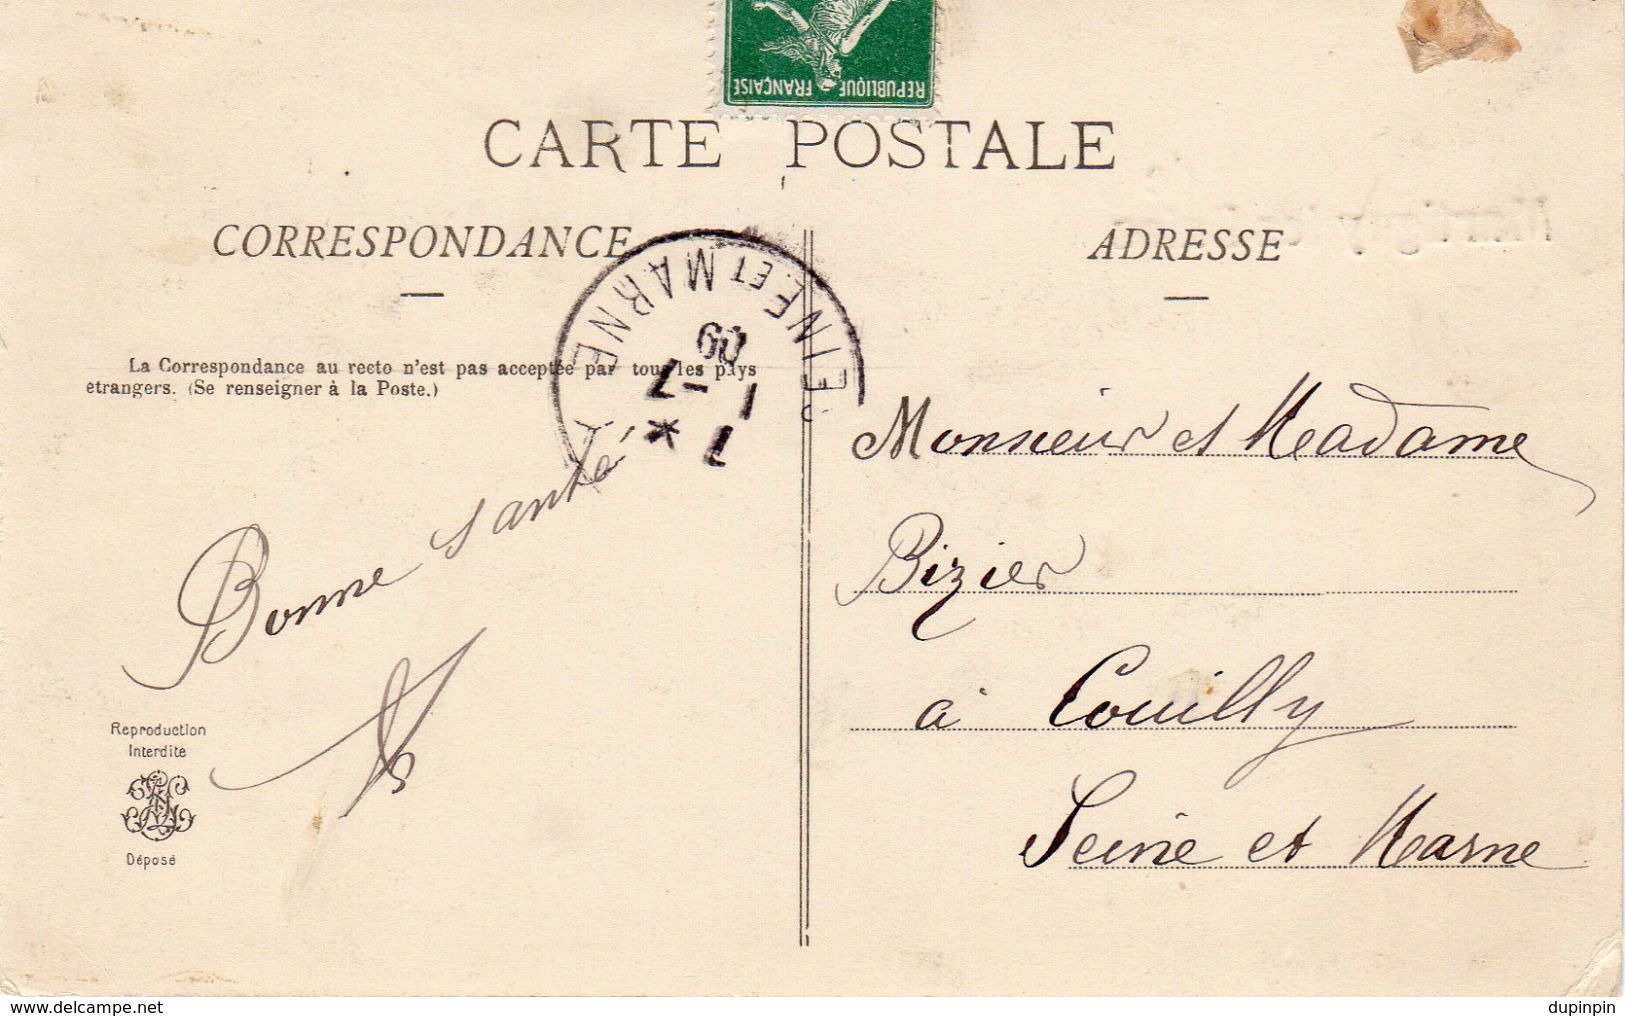 REPUBLIQUE FRANÇAISE
CARTE POSTALE
CORRESPONDANCE
La Correspondance au recto n'est pas acceptée par tous les pays
etrangers. (Se renseigner à la Poste.)
SEINE ET MARNE
7 *
1 -7
09
Bonne santé
Reproduction
Interdite
Déposé
ADRESSE
Monsieur et Madame
Bizier
à Couilly
Seine et Marne
www.delcampe.net
dupinpin